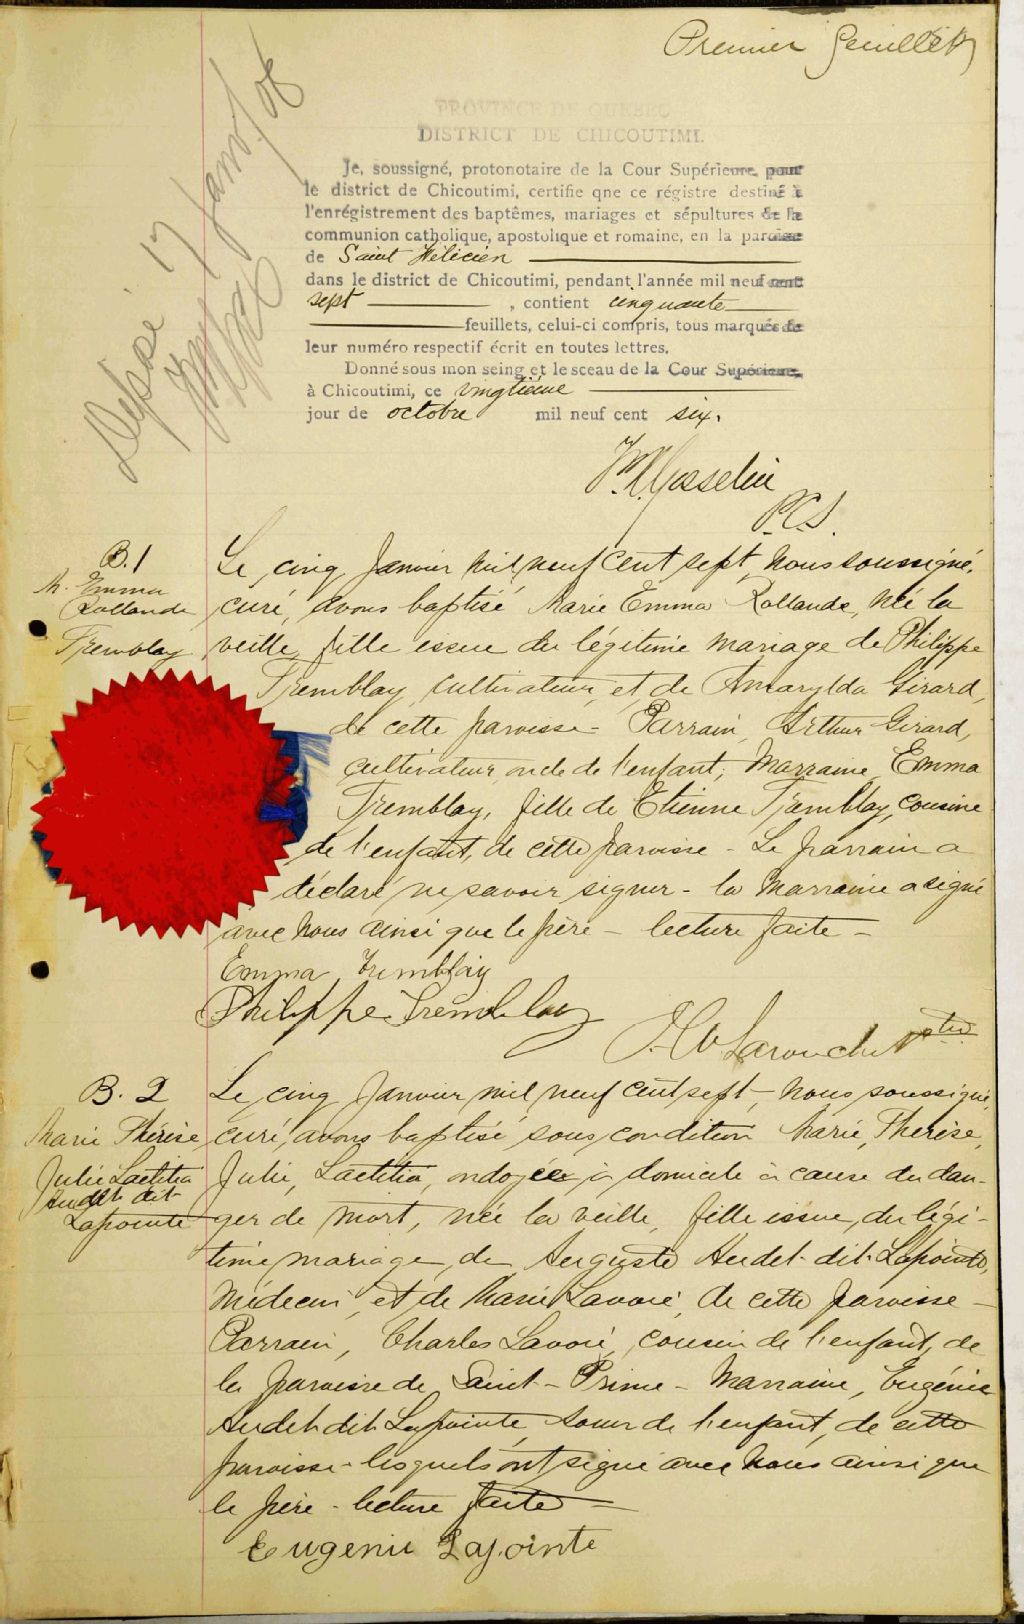 Premier feuillet
Déposé 17 Janv/08
PROVINCE DE QUEBEC
DISTRICT DE CHICOUTIMI.
Je, soussigné, protonotaire de la Cour Supérieure, pour
le district de Chicoutimi, certifie qne ce régistre destiné à
l'enrégistrement des baptêmes, mariages et sépultures de la
communion catholique, apostolique et romaine, en la paroisse
de Saint Félicien
dans le district de Chicoutimi, pendant l'année mil neuf cent
sept , contient cinquante
feuillets, celui-ci compris, tous marqués de
leur numéro respectif écrit en toutes lettres.
Donné sous mon seing et le sceau de la Cour Supérieure,
à Chicoutimi, ce vingtième
jour de octobre mil neuf cent six.
Gosselin
P.C.S.
B. 1
M. Emma
Rollande
Tremblay
Le cinq Janvier mil neuf cent sept, nous soussigné,
curé, avons baptisé Marie Emma Rollande, née la
veille, fille issue du légitime mariage de Philippe
Tremblay, cultivateur, et de Amarylda Girard,
de cette paroisse - Parrain, Arthur Girard,
cultivateur oncle de l'enfant; Marraine, Emma
Tremblay, fille de Etienne Tremblay, cousine
de l'enfant, de cette paroisse - Le parrain a
déclaré ne savoir signer - la marraine a signé
avec nous ainsi que le père - lecture faite -
Emma Tremblay
Philippe Tremblay
Larouche Ptre
B. 2
Marie Thérèse
Julie Laetitia
Audet dit
Lapointe
Le cinq Janvier mil neuf cent sept, nous soussigné,
curé, avons baptisé sous condition Marie, Thérèse,
Julie, Laetitia, ondoyée à domicile à cause du dan-
ger de mort, née la veille, fille issue du légi-
time mariage de Auguste Audet dit Lapointe,
Médecin, et de Marie Lavoie, de cette paroisse -
Parrain, Charles Lavoie, cousin de l'enfant, de
la paroisse de Saint-Prime - Marraine, Eugénie
Audet dit Lapointe, soeur de l'enfant, de cette
paroisse - lesquels ont signé avec nous ainsi que
le père - lecture faite -
Eugenie Lapointe